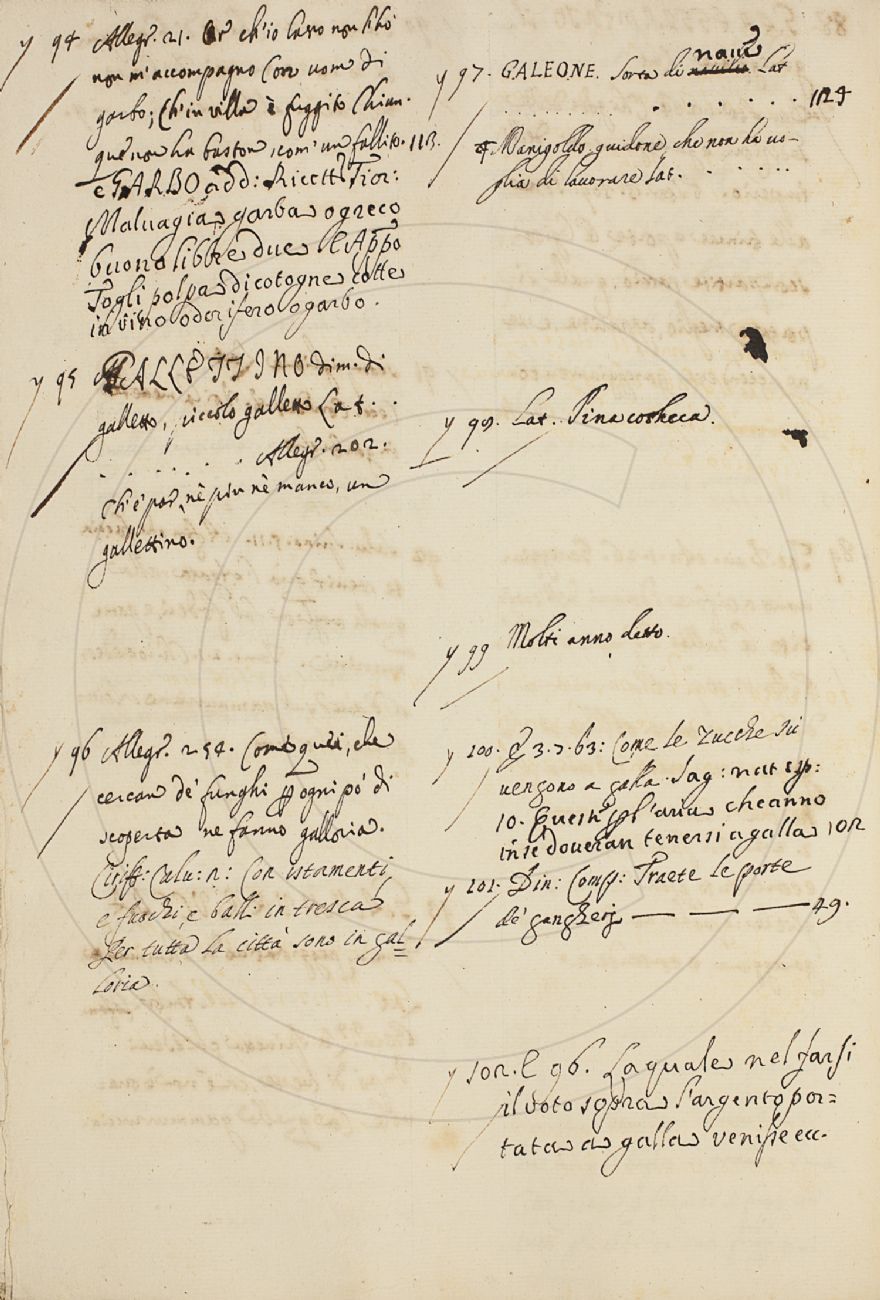 y 94 Allegr. 21. Or ch'io l'avo non l'hò
non m'accompagno con uom di
garbo; Ch'in villa è fuggito Chiun-
que non ha baston, com' un fallito. 113.
e GARBO add: Ricett: Fior:
Malvagia garba o greco
buono libbre due. E Appo
Togli polpa di cotogne cotte
in vino odorifero o garbo.
y 95 GALLETTINO dim. di
galletto, piccolo galletto Lat. . .
. . . . . . . Allegr. 202.
Ch'è par nè piu nè manco, un
gallettino.
y 96 Allegr. 254. Come quei, che
cercan de' funghi p ogni pò di
scoperta ne fanno galloria.
Ciriff: Calv: n: Con istormenti,
e fuochi, e balli in tresca
Per tutta la città sono in gal=
loria.
y 97. GALEONE. Sorta di nave Lat
. . . . . . . . . . . . 1124
Manigoldo, guidone, che non hà vo-
glia di lavorare Lat. . . . . . .
y 98. Lat. Pinacotheca.
y 99 Molti anno detto.
y 100. E 3.7.63: Come le zucche su
vengono a galla. Sag: nat esp:
10. Questi p l'aria che anno
in sè doveran tenersi a galla 102
y 101. Din: Comp: Traete le porte
de' gangheri — — — 49.
y 102. E 96. La quale nel farsi
il voto sopra l'argento por=
tata a galla venisse ec.